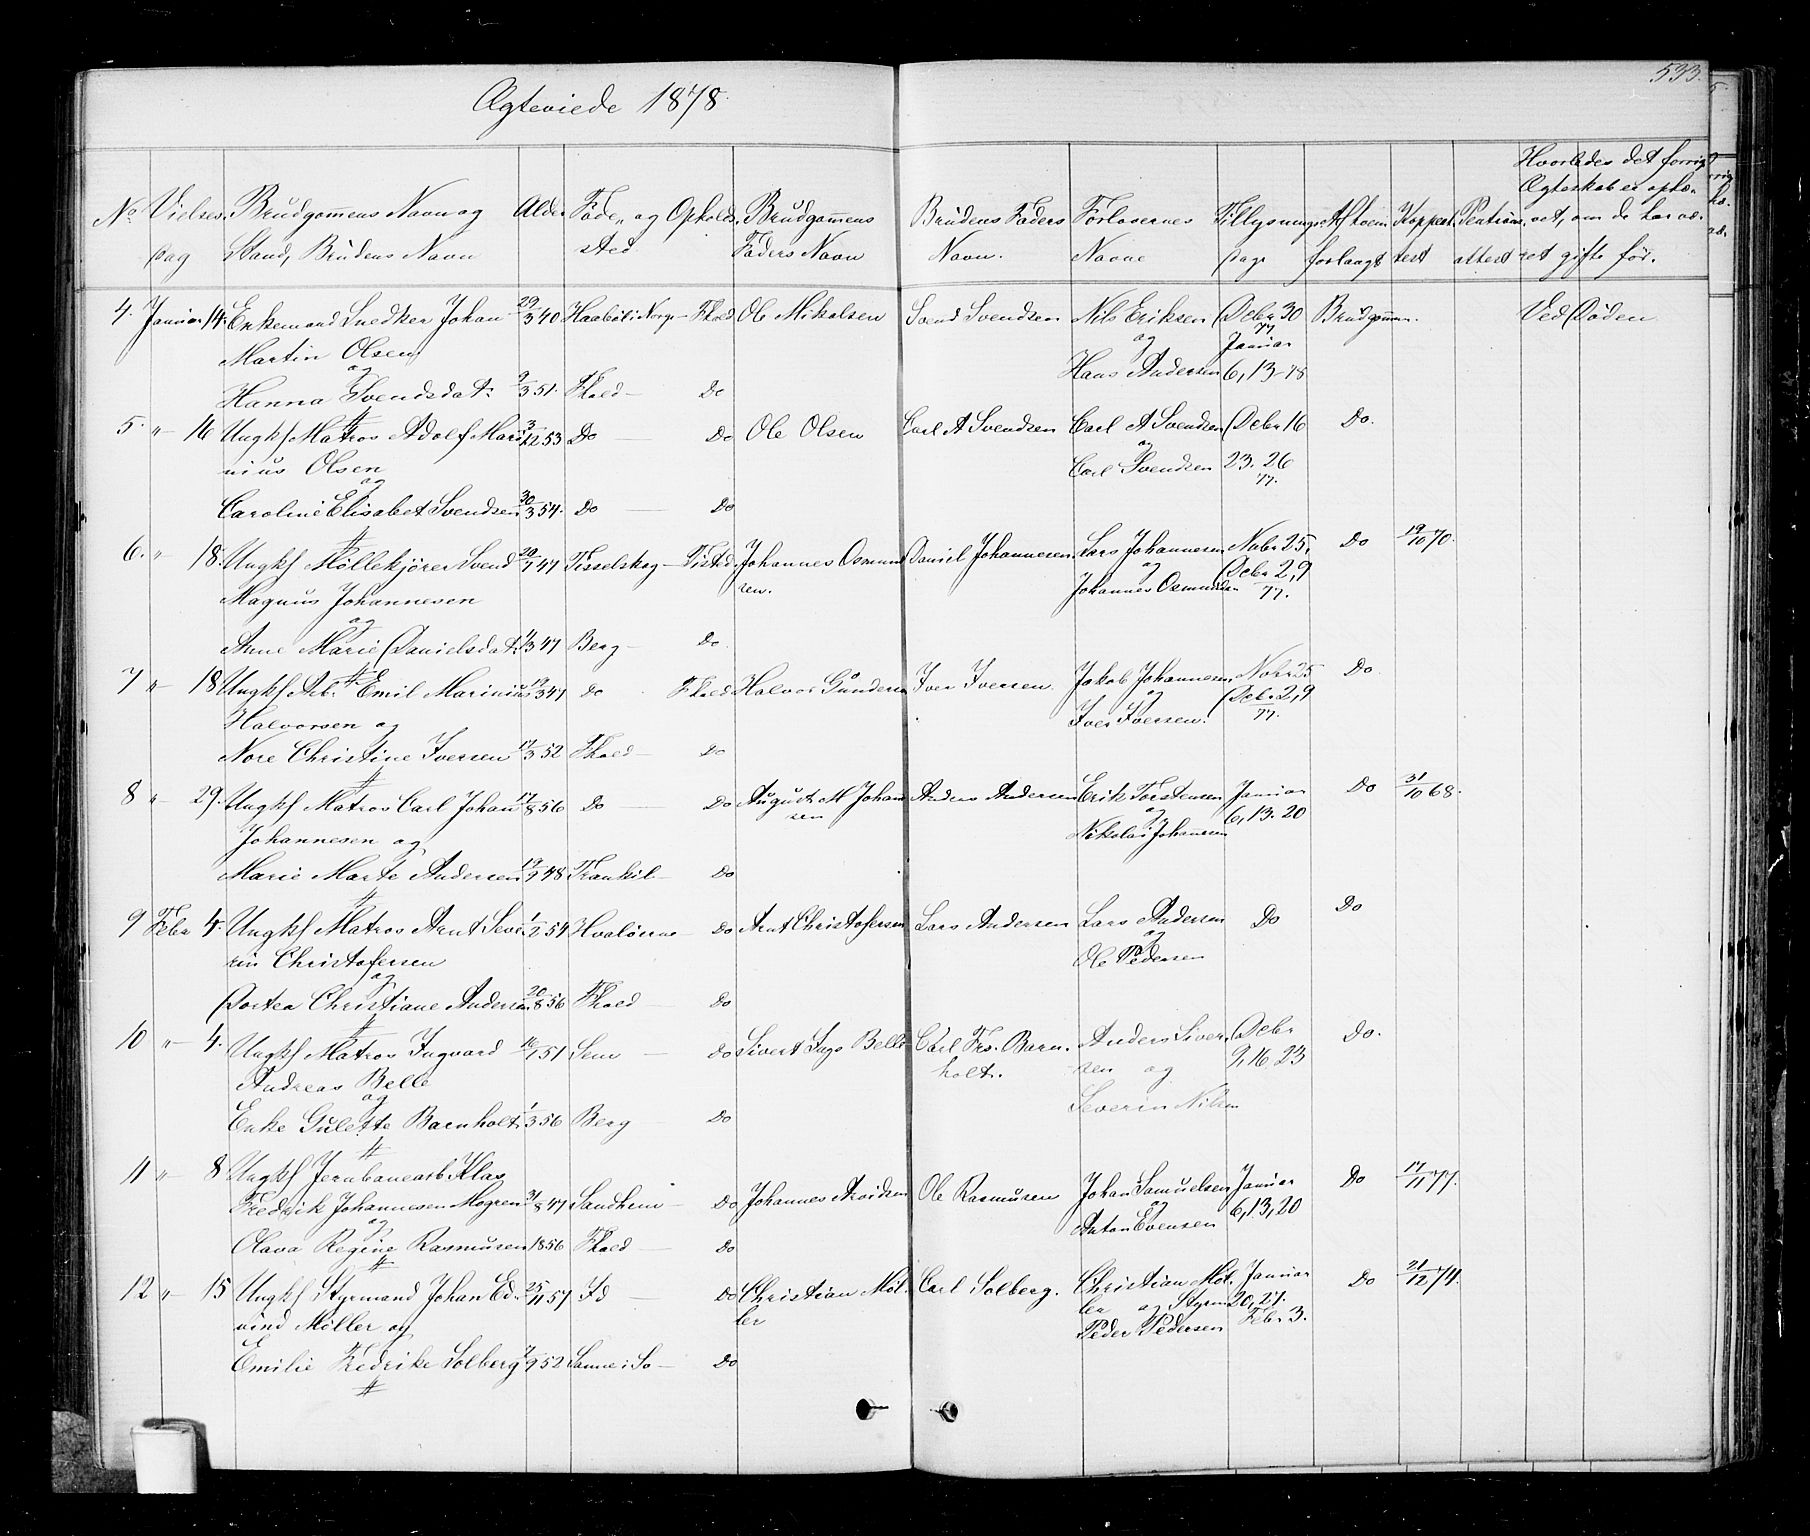 533.
Ægteviede 1878.
No Vielses Brudgomens Navn og Alder Føde- og Opholds Brudgommens Brudens Faders Forlovernes Tillysnings Af hvem Koppeat Hvorledes det forrige
dag Stand, Brudens Navn sted Faders Navn Navn. Navne dage forlangt test attest Ægteskab er ophæ-
vet, om de har væ-
ret gifte før.
4. Januar 14. Enkemand Snedker Johan 29/3 40 Haabøl i Norge - Fhald Ole Mikalsen Svend Svendsen Nils Eriksen Debr 30 Brudgommen. Ved Døden
Martin Olsen og 77 Januar
og Hans Andersen 6, 13 - 78
Hanna Svendsdat: 9/3 51. Fhald - Do
5. " 16 Ungkf Matros Adolf Mari 3/12 53 Do Do Ole Olsen Carl A Svendsen Carl A Svendsen Debr 16 Do.
nius Olsen og
og Carl Svendsen 23. 26
77.
Caroline Elisabet Svendsen 30/3 54. Do - Do
6. " 18. Ungkf Møllekjører Svend 29/7 47 Tisselskog - Tisted. Johannes Osmund Daniel Johannesen. Lars Johannesen Nobr 25, Do 19/10 70.
Magnus Johannesen sen. og Debr 2, 9
og Johannes Osmundsen 77.
Anne Marie Danielsdat: 4/3 47 Berg - Do.
7 " 18 Ungkf Arb. Emil Marinius 12/3 47 Do Fhald Halvor Gunderse Iver Iversen. Jakob Johannesen Nobr 25 Do.
Halvorsen og og Debr 2, 9
Iver Iversen. 77.
Nore Christine Iversen 17/3 52 Fhald - Do
8 " 29. Ungkf Matros Carl Johan 17/8 56 Do - Do August M Johan Anders Andersen Erik Torstensen Januar Do 31/10 68.
Johannesen og sen og 6, 13. 20
Nikolai Johansen
Marie Marte Andersen 19/9 48 Frankil - Do
9 Febr 4. Ungkf Matros Arnt Seve 1/2 54 Hvaløerne - Do Arnt Christofersen Lars Andersen Lars Andersen Do Do
rin Christofersen og
og Ole Pedersen
Dortea Christiane Andersen 20/8 56 Fhald - Do
10 " 4. Ungkf Matros Ingvard 16/1 51 Sem - Do Sivert Belle Carl Frs. Barn. Anders Siver Debr Do.
Andreas Belle holt. sen og 9, 16, 23
og Severin Nilsen
Enke Gulette Barnholt 1/3 56 Berg - Do
11 " 8 Ungkf Jernbanearb Klas
Fredrik Johannesen Mogren 31/8 47 Sandhem - Do Johannes Arvidsen Ole Rasmusen Johan Samuelsen Januar Do 17/11 77.
og og 6, 13, 20
Anton Evensen
Olava Regine Rasmusen 1856 Fhald - Do
12 " 15 Ungkf Styrmand Johan Ed. 25/11 57 Id - Do Christian Møl- Carl Solberg. Christian Møl. Januar Do 21/12 74.
vind Møller og ler ler og Styrm 20, 27.
Peder Pedersen Febr 3.
Emilie Fredrike Solberg 7/9 52 Sanne i So - Do